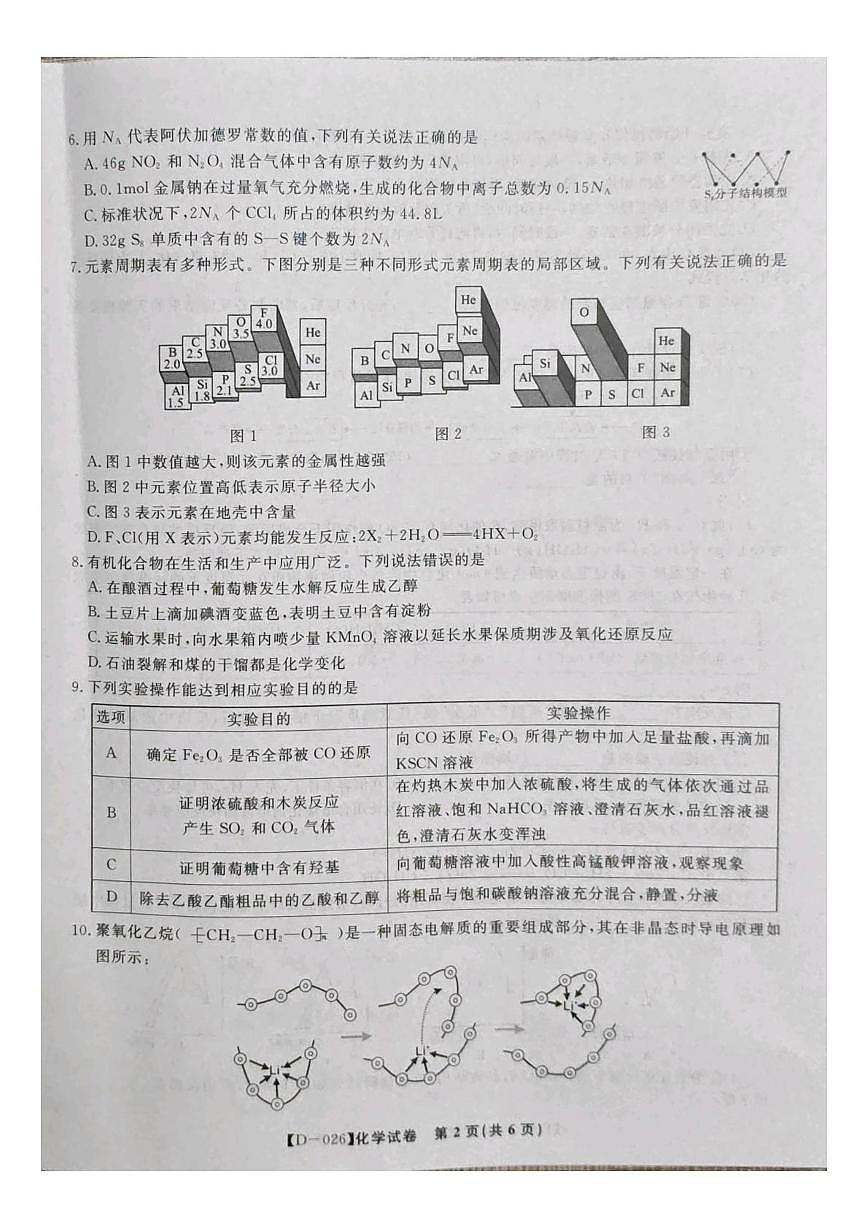 6.用 NA 代表阿伏加德罗常数的值,下列有关说法正确的是
A. 46g NO₂ 和 N₂O₄ 混合气体中含有原子数约为 4NA
B. 0.1mol 金属钠在过量氧气充分燃烧,生成的化合物中离子总数为 0.15NA
C. 标准状况下,2NA 个 CCl₄ 所占的体积约为 44.8L
D. 32g S₈ 单质中含有的 S—S 键个数为 2NA
S₈分子结构模型
7.元素周期表有多种形式。下图分别是三种不同形式元素周期表的局部区域。下列有关说法正确的是
B 2.0 C 2.5 N 3.0 O 3.5 F 4.0 He
Ne
Al 1.5 Si 1.8 P 2.1 S 2.5 Cl 3.0 Ar
图 1
He
B C N O F Ne
Al Si P S Cl Ar
图 2
O He
Al Si N F Ne
P S Cl Ar
图 3
A. 图 1 中数值越大,则该元素的金属性越强
B. 图 2 中元素位置高低表示原子半径大小
C. 图 3 表示元素在地壳中含量
D. F、Cl(用 X 表示)元素均能发生反应:2X₂+2H₂O══4HX+O₂
8.有机化合物在生活和生产中应用广泛。下列说法错误的是
A. 在酿酒过程中,葡萄糖发生水解反应生成乙醇
B. 土豆片上滴加碘酒变蓝色,表明土豆中含有淀粉
C. 运输水果时,向水果箱内喷少量 KMnO₄ 溶液以延长水果保质期涉及氧化还原反应
D. 石油裂解和煤的干馏都是化学变化
9.下列实验操作能达到相应实验目的的是
选项 实验目的 实验操作
A 确定 Fe₂O₃ 是否全部被 CO 还原 向 CO 还原 Fe₂O₃ 所得产物中加入足量盐酸,再滴加
KSCN 溶液
B 证明浓硫酸和木炭反应
产生 SO₂ 和 CO₂ 气体
在灼热木炭中加入浓硫酸,将生成的气体依次通过品
红溶液、饱和 NaHCO₃ 溶液、澄清石灰水,品红溶液褪
色,澄清石灰水变浑浊
C 证明葡萄糖中含有羟基 向葡萄糖溶液中加入酸性高锰酸钾溶液,观察现象
D 除去乙酸乙酯粗品中的乙酸和乙醇 将粗品与饱和碳酸钠溶液充分混合,静置,分液
10.聚氧化乙烷( ⁅CH₂—CH₂—O⁆ₙ )是一种固态电解质的重要组成部分,其在非晶态时导电原理如
图所示:
Li⁺ Li⁺ Li⁺
【D-026】化学试卷 第 2 页(共 6 页)